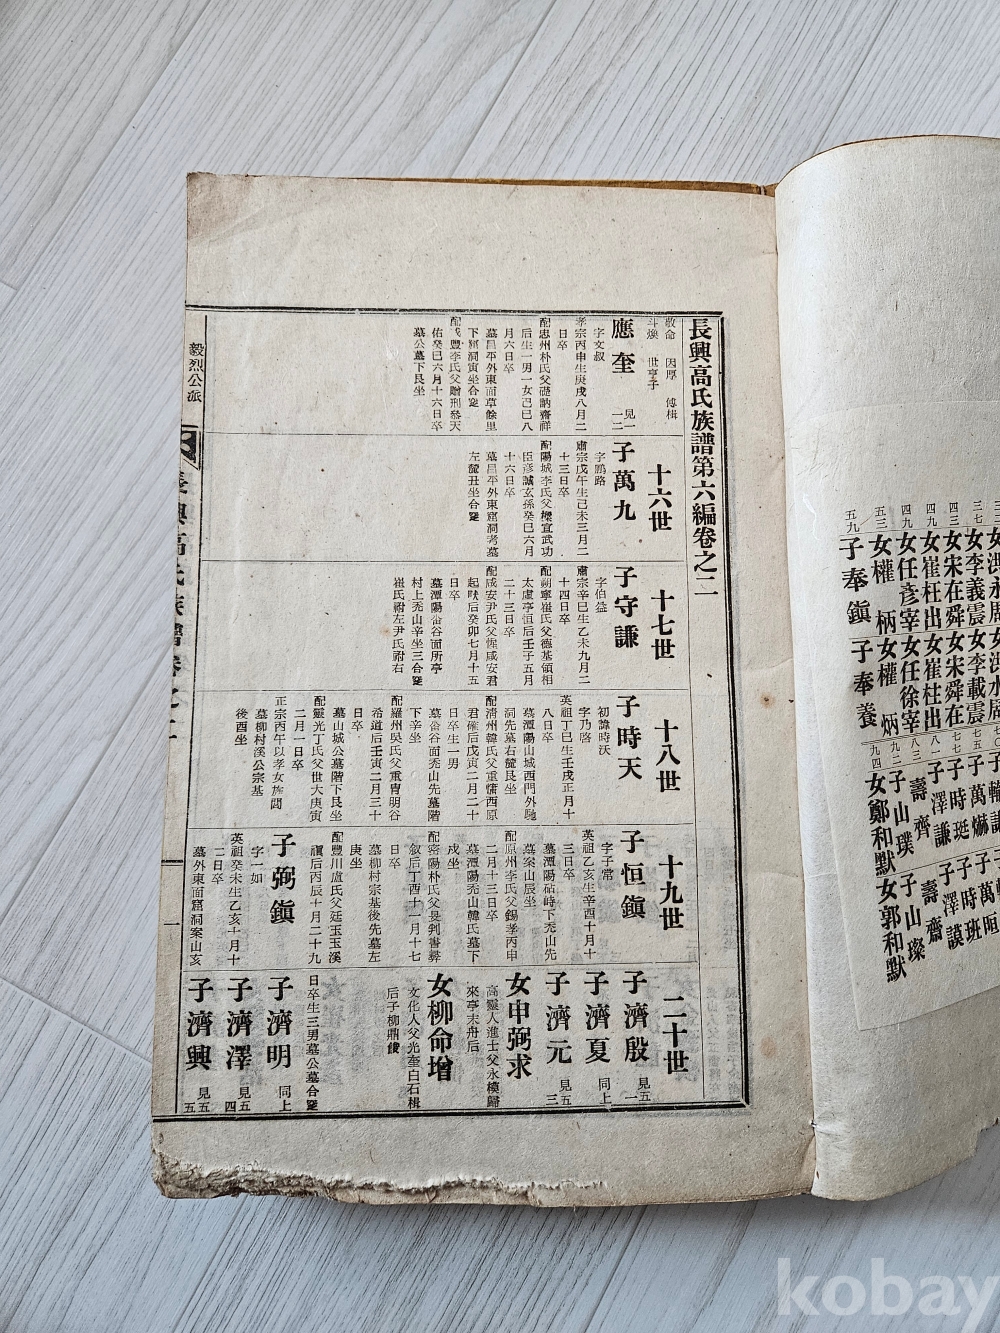 長興高氏族譜第六編卷之二
敬命 因厚 傅楫
斗煥 世亨子
應奎 見一二
字文叔
孝宗丙申生庚戌八月二
日卒
月六日卒
墓昌平外東面草餘里
下窟洞寅坐合窆
佑癸巳六月十六日卒
墓公墓下艮坐
十六世
子萬九
字鵬路
肅宗戊午生己未三月二
十三日卒
十六日卒
墓昌平外東窟洞考墓
左麓丑坐合窆
十七世
子守謙
字伯益
肅宗辛巳生乙未九月二
十四日卒
配朔寧崔氏父德基領相
太虛亭恒后壬子五月
二十三日卒
配咸安尹氏父惺咸安君
起畎后癸卯七月十五
日卒
墓潭陽峃谷面所亭
村上禿山辛坐三合窆
崔氏祔左尹氏祔右
十八世
子時天
初諱時沃
字乃啓
英祖丁巳生壬戌正月十
八日卒
墓潭陽山城西門外馳
洞先墓右麓艮坐
配淸州韓氏父重㦃西原
君確后戊寅二月二十
日卒生一男
墓峃谷面禿山先墓階
下辛坐
配羅州吳氏父重胄明谷
希道后壬寅二月三十
日卒
墓山城公墓階下艮坐
配靈光丁氏父世大庚寅
二月一日卒
正宗丙午以孝女旌閭
墓柳村溪公宗基
後酉坐
十九世
子恒鎭
字子常
英祖乙亥生辛酉十月十
三日卒
墓潭陽砧峙下禿山先
墓案山辰坐
配原州李氏父錫孝丙申
二月十三日卒
墓潭陽禿山韓氏墓下
戌坐
配密陽朴氏父旻判書昇
叙后丁酉十一月十七
日卒
墓柳村宗基後先墓左
庚坐
配豊川盧氏父廷玉玉溪
禛后丙辰十月二十九
子弼鎭
字一如
英祖癸未生乙亥十月十
二日卒
墓外東面窟洞案山亥
二十世
子濟殷 見五一
子濟夏 同上
子濟元 見五三
女申弼求
高靈人進士父永模歸
來亭末舟后
女柳命增
文化人父光奎白石楫
后子柳鼎錢
日卒生三男墓公墓合窆
子濟明 同上
子濟澤 見五四
子濟興 見五五
毅烈公派
長興高氏族譜卷之二
一
三七 女李義震 女李載震 七五
四三 女宋在舜 女宋舜在 七七
四九 女崔枉出 女崔柱出 八一
四九 女任彥宰 女任徐宰 八三
五三 女權柄 女權炳 九二
五九 子奉鎭 子奉養 九四
子萬爀 子萬晅
子時珽 子時班
子澤謙 子澤謨
壽齊 壽齋
子山璞 子山璨
女鄭和默 女郭和默
kobay